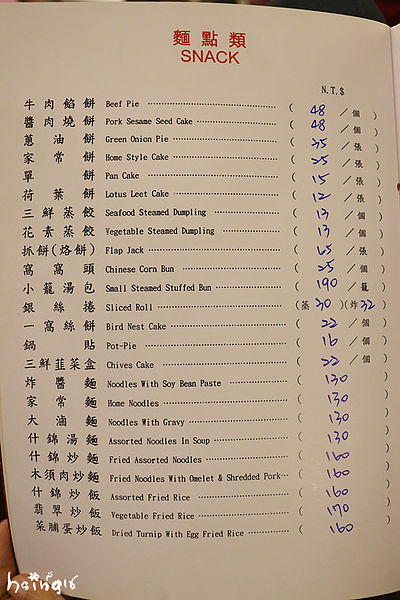 麵點類
SNACK
N.T.$
牛肉餡餅 Beef Pie ( 48 /個 )
醬肉燒餅 Pork Sesame Seed Cake ( 48 /個 )
蔥油餅 Green Onion Pie ( 35 /張 )
家常餅 Home Style Cake ( 25 /張 )
單餅 Pan Cake ( 15 /張 )
荷葉餅 Lotus Leet Cake ( 12 /張 )
三鮮蒸餃 Seafood Steamed Dumpling ( 13 /個 )
花素蒸餃 Vegetable Steamed Dumpling ( 13 /個 )
抓餅(烙餅) Flap Jack ( 65 /張 )
窩窩頭 Chinese Corn Bun ( 25 /個 )
小籠湯包 Small Steamed Stuffed Bun ( 190 /籠 )
銀絲捲 Sliced Roll (蒸 30 )(炸 32 )
一窩絲餅 Bird Nest Cake ( 22 /個 )
鍋貼 Pot-Pie ( 16 /個 )
三鮮韮菜盒 Chives Cake ( 22 /個 )
炸醬麵 Noodles With Soy Bean Paste ( 130 )
家常麵 Home Noodles ( 130 )
大滷麵 Noodles With Gravy ( 130 )
什錦湯麵 Assorted Noodles In Soup ( 130 )
什錦炒麵 Fried Assorted Noodles ( 160 )
木須肉炒麵 Fried Noodles With Omelet & Shredded Pork ( 160 )
什錦炒飯 Assorted Fried Rice ( 160 )
翡翠炒飯 Vegetable Fried Rice ( 170 )
菜脯蛋炒飯 Dried Turnip With Egg Fried Rice ( 160 )
hsing16